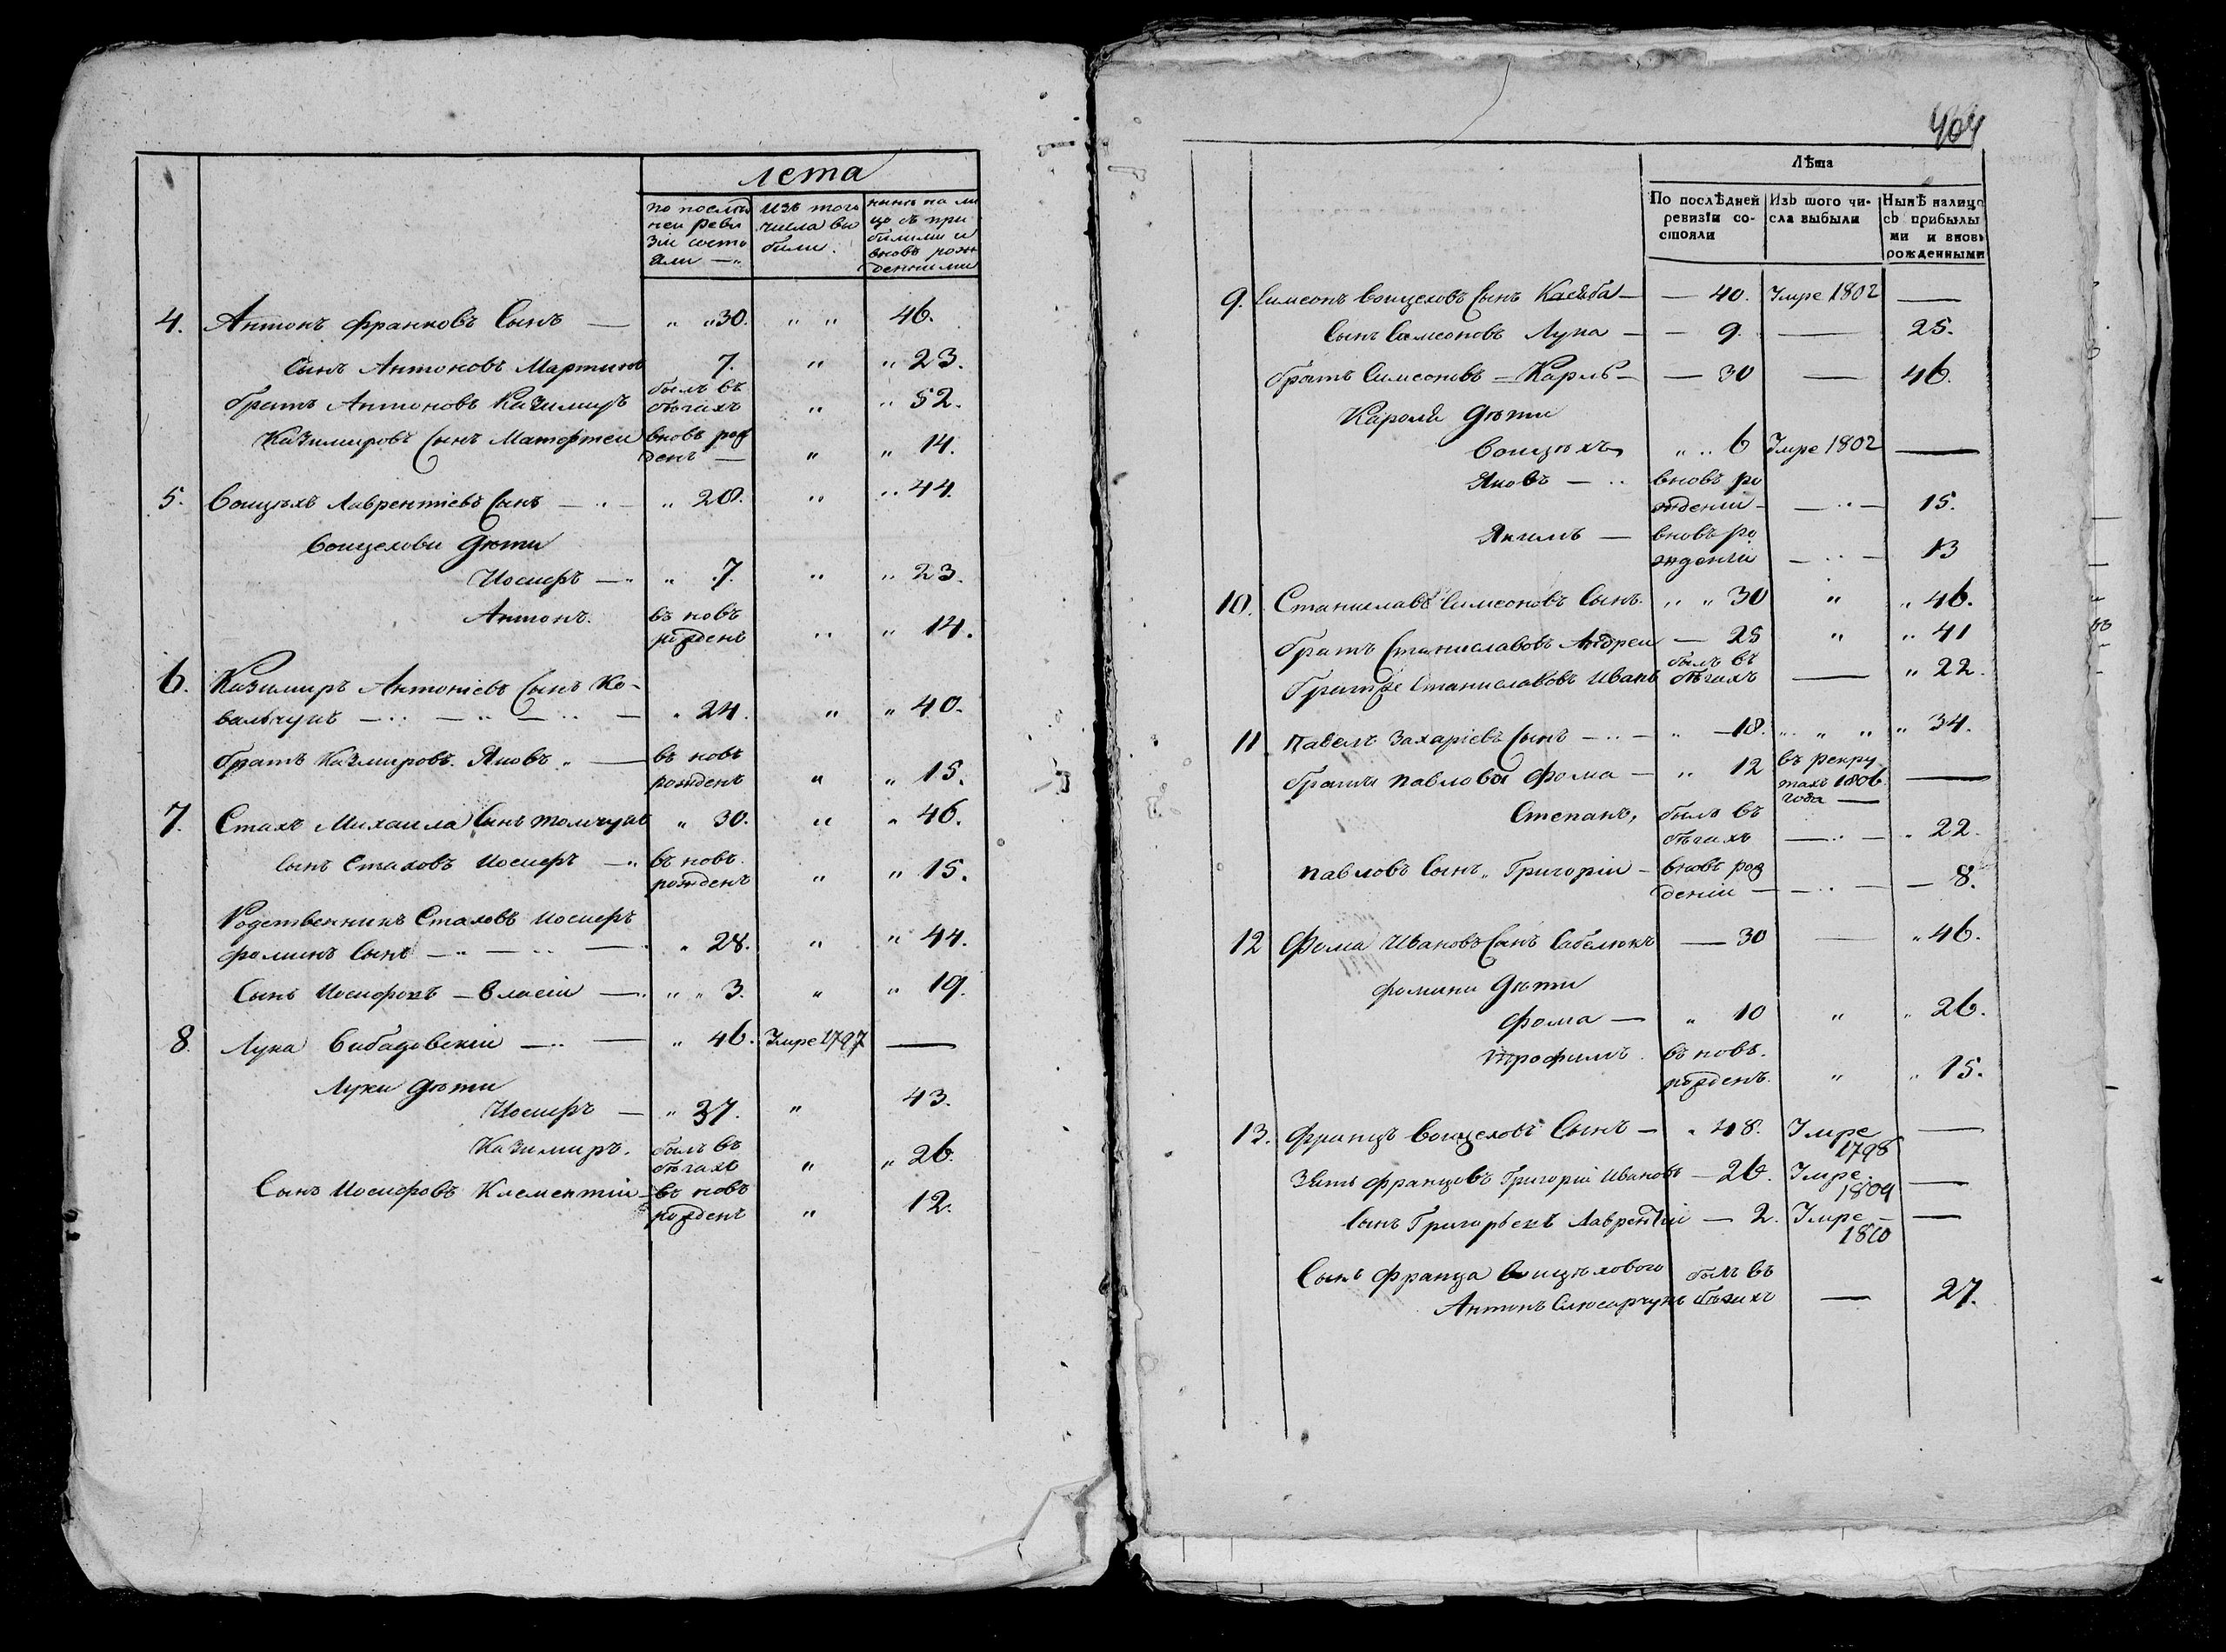 лета
по послед ней реви зіи состо яли —„ изъ того числа вы были. нынѣ на ли цо съ при былыми и вновь рож денными
4. Антонъ франковъ Сынъ — „ „ 30. „ „ 46.
Сынъ Антоновъ Мартинъ 7. „ „ 23.
братъ Антоновъ Казимиръ былъ въ бѣгахъ „ „ 52.
Казимировъ Сынъ Матофтеи вновь рож денъ — „ „ 14.
5. Воицѣхъ Лаврентіевъ Сынъ — „ — „ 28. „ „ 44.
Воицехови дѣти
Иосифъ — „ „ 7. „ „ 23.
Антонъ. въ новъ рожденъ „ „ 14.
6. Казимиръ Антоніевъ Сынъ Ко-
вальчукъ — „ — „ — „ — „ 24. „ „ 40.
братъ Казмировъ. Яковъ „ — въ новъ рожденъ „ „ 15.
7. Стахъ Михаила Сынъ томчукъ „ 30. „ „ 46.
Сынъ Стаховъ Иосифъ — „ въ новъ. рожденъ „ „ 15.
Родственникъ Стаховъ Иосифъ
фоминъ Сынъ — „ — „ — „ 28. „ „ 44.
Сынъ Иосифовъ — Власіи — „ „ „ 3. „ „ 19.
8. Лука — „ — „ 46. Умре 1797 —
Луки дѣти
Иосифъ — „ 27. „ 43.
Казимиръ. былъ въ бѣгахъ „ „ 26.
Сынъ Иосифовъ Клементіи — въ новъ рожденъ „ 12.
404
Лѣта
По послѣдней ревизіи со- стояли Изъ того чи- сла выбыли Нынѣ налицо съ прибылы ми и вновь рожденными
9. Симеонъ Воицеховъ Сынъ — — 40. Умре 1802 —
Сынъ Симеоновъ Лука — — 9. — 25.
братъ Симеоновъ — Карль — — 30 — 46.
Кароля дѣти
Воицѣхъ „ „ 6 Умре 1802 —
Яковъ — „ вновь ро жденіи — — „ — 15.
Якимъ — вновь ро жденіи — „ — 13
10. Станиславъ Симеоновъ Сынъ. „ „ 30 „ „ 46.
братъ Станиславовъ Андреи — 25 „ „ 41
братъ же Станиславовъ Иванъ былъ въ бѣгахъ — „ 22.
11 Павелъ Захаріевъ Сынъ — „ — „ — 18. „ „ „ „ 34.
братья павловы фома — „ 12 въ рекру тахъ 1806 года — —
Степанъ, былъ въ бѣгахъ — „ — „ 22.
павловъ Сынъ „ Григоріи — вновь рож деніи — — „ — — 8.
12 Фома Ивановъ Сынъ Сабелюкъ — 30 — „ 46.
фомини дѣти
фома — „ 10 „ „ 26.
трофимъ. въ новъ. рожденъ. „ „ 15.
13. францъ Воицеховъ Сынъ — „ 48. Умре 1798 —
Зять францовъ Григоріи Ивановъ — 26. Умре 1809 —
Сынъ Григорьевъ Лаврентіи — 2. Умре — 1810 —
Сынъ франца Воицѣхового былъ въ
Антонъ Слюсарчукъ бѣгахъ — 27.